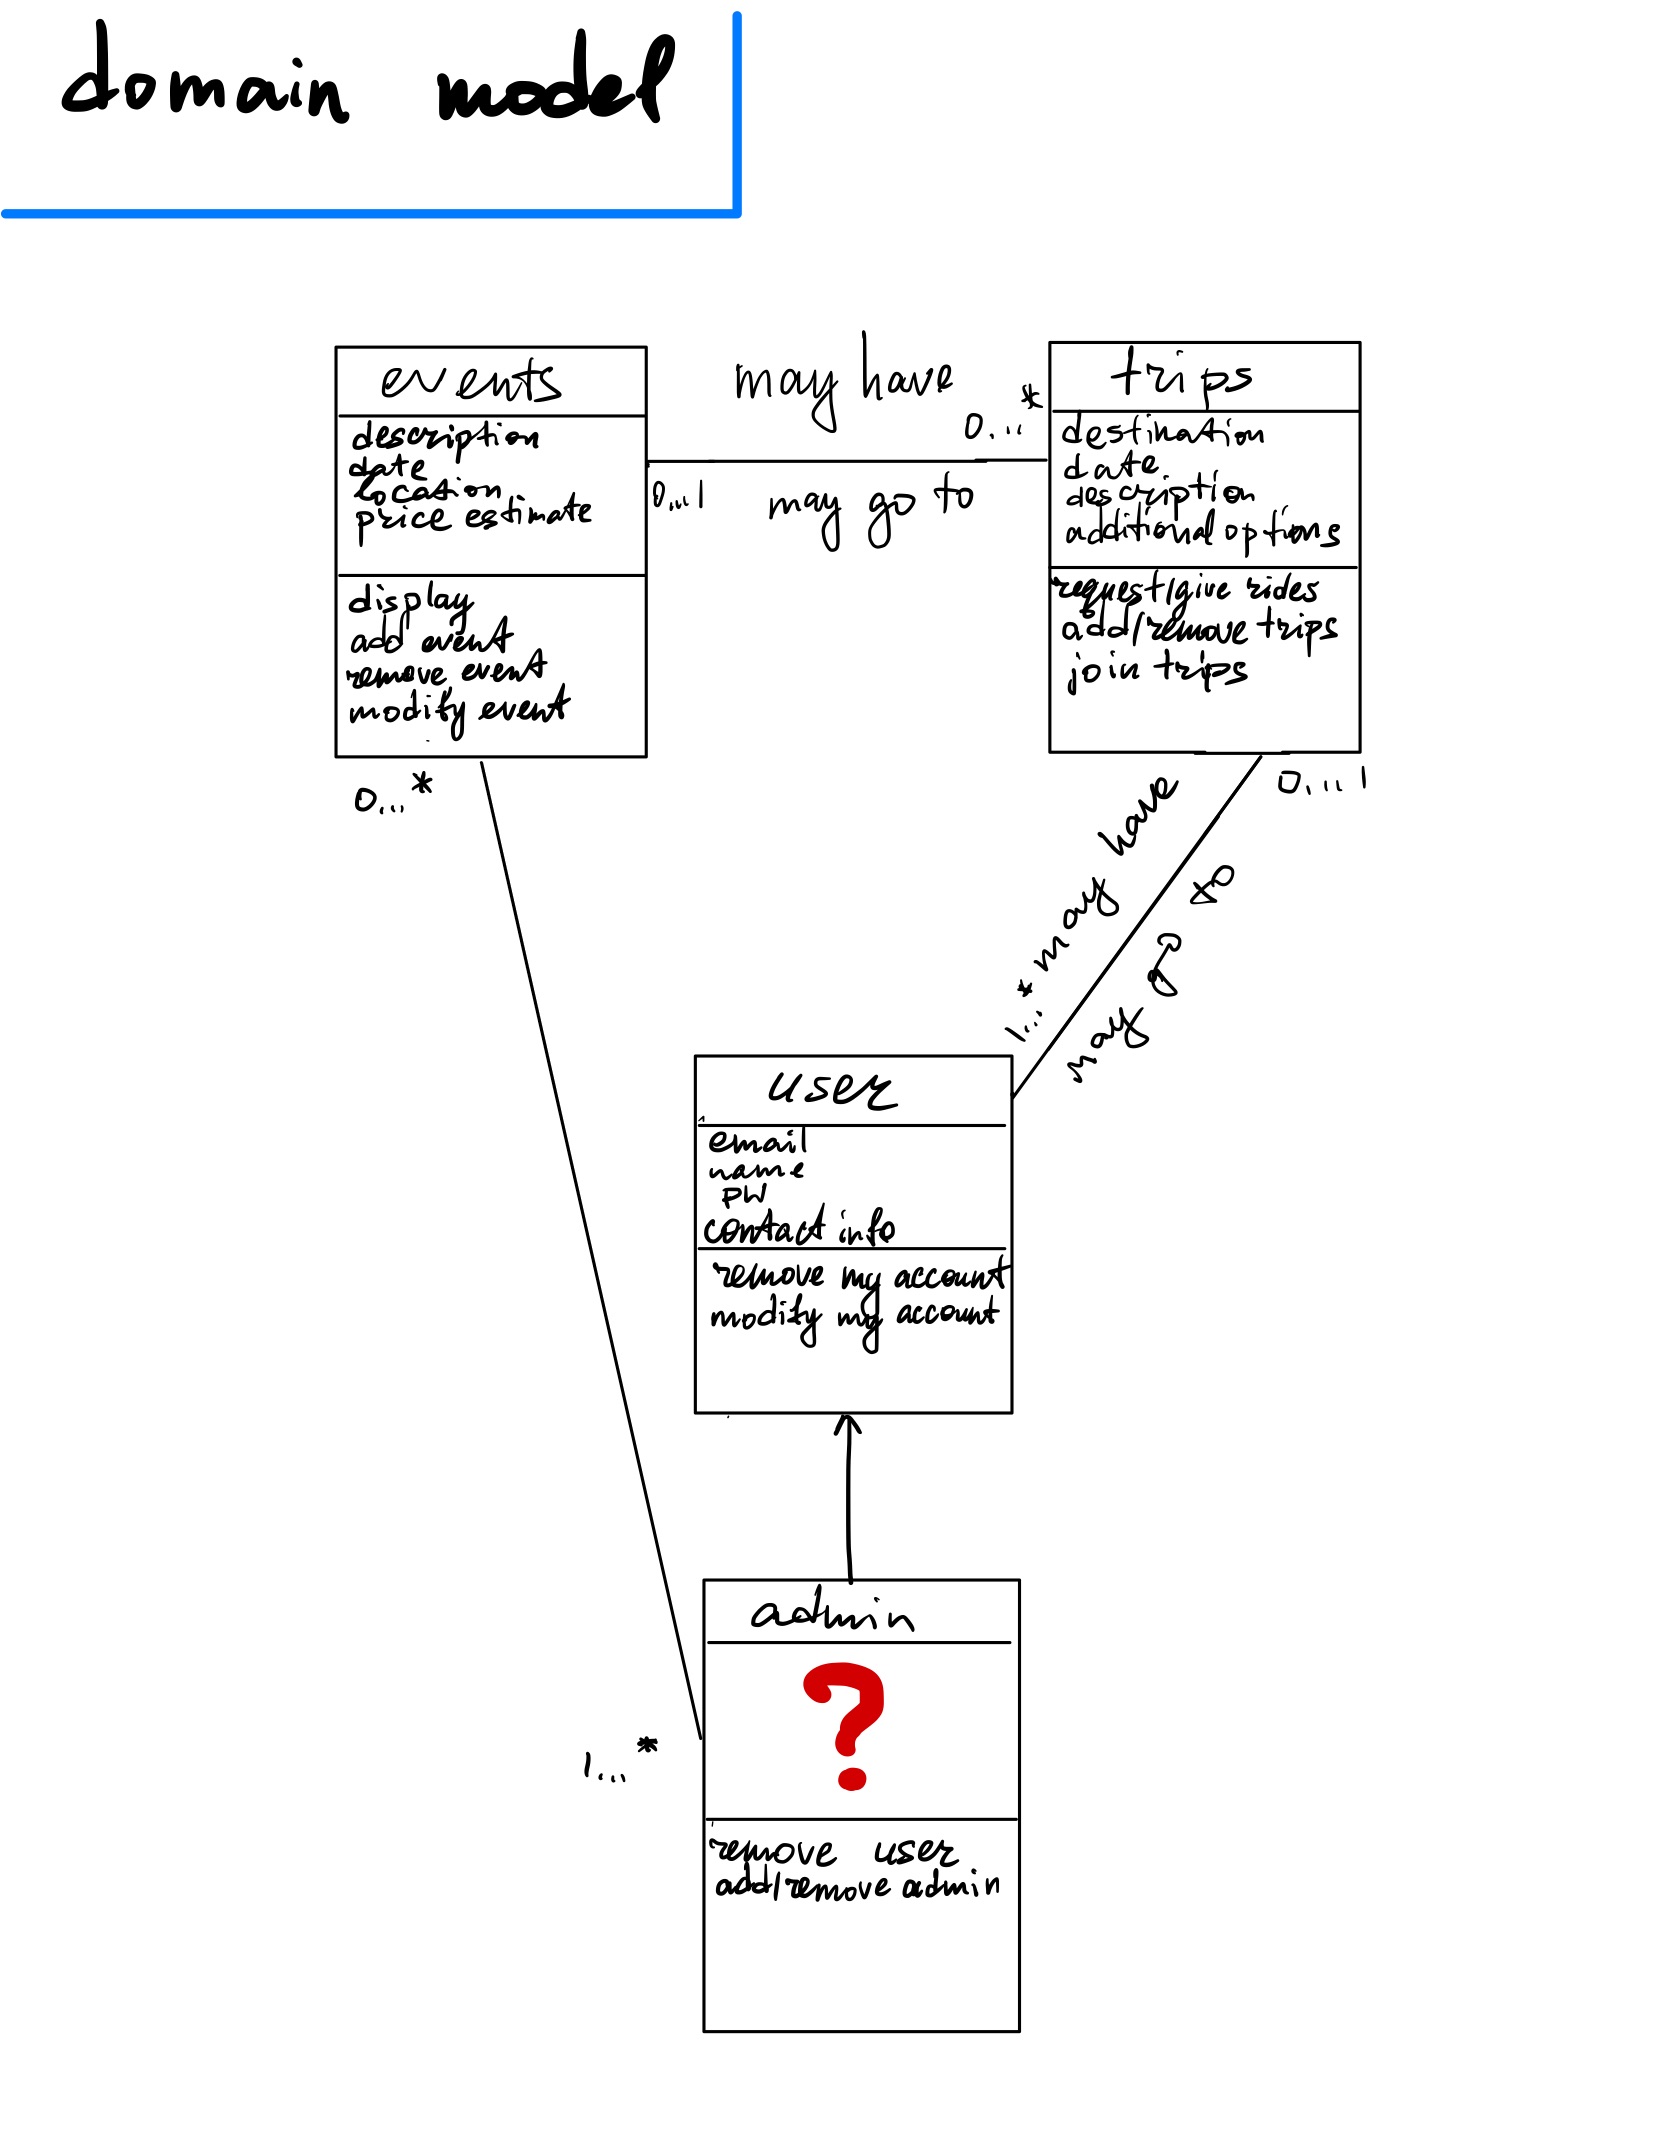 domain model
events
description
date
location
price estimate
display
add event
remove event
modify event
may have
0...*
0...1
may go to
trips
destination
date
description
additional options
request/give rides
add/remove trips
join trips
0...*
0...1
1...* may have
may go to
user
email
name
PW
contact info
remove my account
modify my account
admin
?
1...*
remove user
add/remove admin